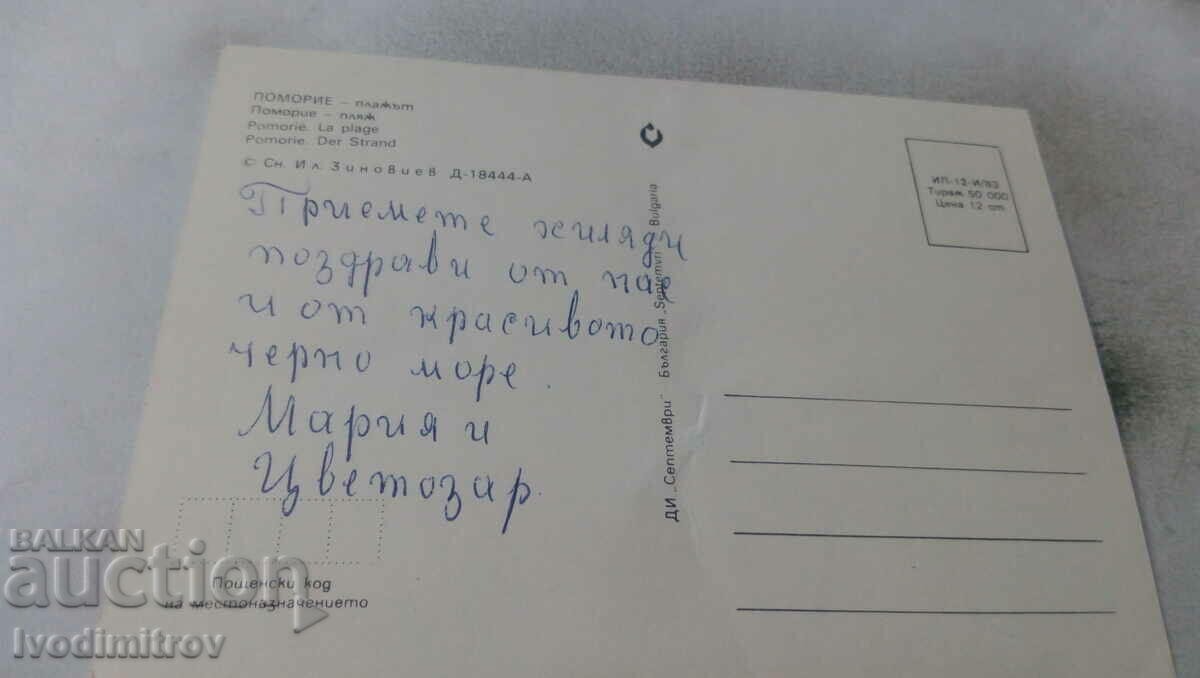 ПОМОРИЕ – плажът
Поморие – пляж
Pomorie. La plage
Pomorie. Der Strand
© Сн. Ил. Зиновиев Д-18444-А
Приемете хиляди
поздрави от нас
и от красивото
черно море.
Мария и
Цветозар.
Пощенски код
на местоназначението
ДИ „Септември" България „Septemvri" Bulgaria
ИП-12-И/83
Тираж 50 000
Цена 12 ст
BALKAN
auction
Ivodimitrov